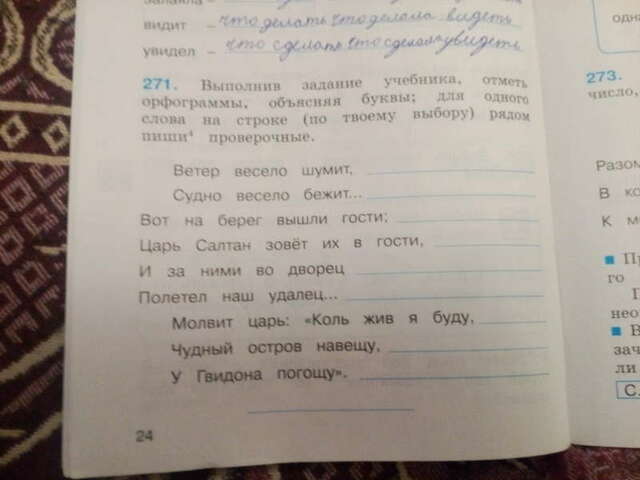 видит – что делать что делала видеть
увидел – что сделать что сделал увидеть
271. Выполнив задание учебника, отметь
орфограммы, объясняя буквы; для одного
слова на строке (по твоему выбору) рядом
пиши⁴ проверочные.
Ветер весело шумит,
Судно весело бежит...
Вот на берег вышли гости;
Царь Салтан зовёт их в гости,
И за ними во дворец
Полетел наш удалец...
Молвит царь: «Коль жив я буду,
Чудный остров навещу,
У Гвидона погощу».
24
одна
273.
число,
Разом
В ко
К м
го
нео
зач
ли
С.